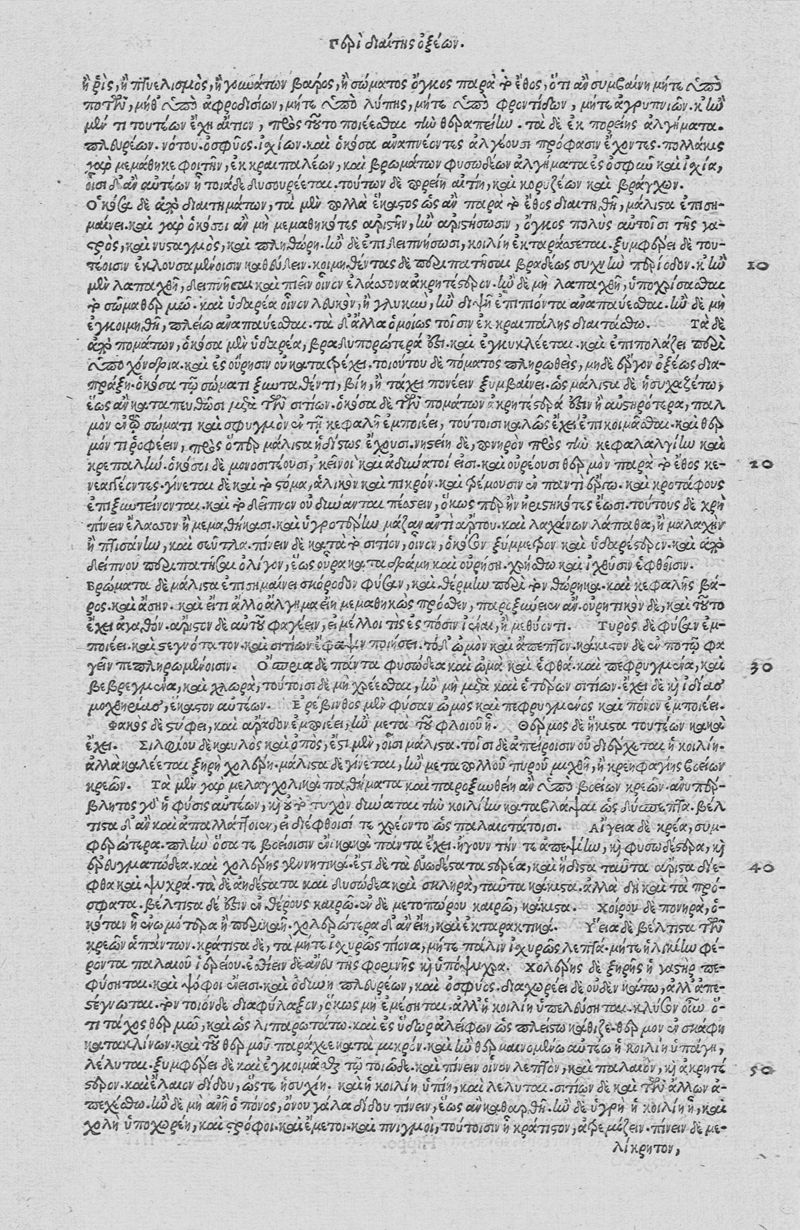 Περὶ διαίτης ὀξέων.
ἢ ῥὶς, ἢ πτυελισμὸς, ἢ γουνάτων βάρος, ἢ σώματος ὄγκος παρὰ τὸ ἔθος, ὅτι ἂν συμβαίνῃ μήτε ὑπὸ
ποτῶν, μήθ' ὑπὸ ἀφροδισίων, μήτε ὑπὸ λύπης, μήτε ὑπὸ φροντίδων, μήτε ἀγρυπνιῶν. κἢν
μέν τι τουτέων ἔχῃ αἴτιον, πρὸς τοῦτο ποιέεσθαι τὴν θεραπείην. τὰ δὲ ἐκ πορείης ἀλγήματα.
πλευρέων. νότου. ὀσφύος. ἰσχίων. καὶ ὁκόσα ἀναπνέοντες ἀλγέουσι πρόφασιν ἔχοντες. πολλάκις
γὰρ μεμάθηκε φοιτῆν, ἐκ κραιπαλέων, καὶ βρωμάτων φυσωδέων ἀλγήματα ἐς ὀσφὺν καὶ ἰσχία,
οἷσι δ' ἂν αὐτέων ἢ τοιάδε δυσουρέεται. τούτων δὲ πορείη αἰτίη, καὶ κορυζέων καὶ βράγχων.
Ὁκόσα δὲ ἀπὸ διαιτημάτων, τὰ μὲν πολλὰ ἕκαστος ὡς ἂν παρὰ τὸ ἔθος διαιτηθῇ, μάλιστα ἐπιση-
μαίνει. καὶ γὰρ ὁκόσοι ἂν μὴ μεμαθηκότες ἀριστῆν, ἢν ἀριστήσωσιν, ὄγκος πολὺς αὐτοῖσι τῆς γα-
στρὸς, καὶ νυσταγμὸς, καὶ πληθώρη. ἢν δὲ ἐπιδειπνήσωσι, κοιλίη ἐκταράσσεται. ξυμφέρει δὲ του-
τέοισιν ἐκλουσαμένοισιν καθεύδειν. κοιμηθέντας δὲ περιπατῆσαι βραδέως συχνὴν περίοδον. κἢν
μὲν λαπαχθῇ, δειπνῆσαι καὶ πιεῖν οἶνον ἐλάσσονα ἀκρητέστερον. ἢν δὲ μὴ λαπαχθῇ, ὑποχρίσασθαι
τὸ σῶμα θερμῷ. καὶ ὑδαρέα οἶνον λευκὸν, ἢ γλυκὺν, ἢν διψῇ ἐπιπιόντα ἀναπαύεσθαι. ἢν δὲ μὴ
ἐγκοιμηθῇ, πλείω ἀναπαύεσθαι. τὰ δ' ἄλλα ὁμοίως τοῖσιν ἐκ κραιπάλης διαιτάσθω. Τὰ δὲ
ἀπὸ πομάτων, ὁκόσα μὲν ὑδαρέα, βραδυπορώτερά ἐστι. καὶ ἐγκυκλέεται. καὶ ἐπιπολάζει περὶ
ὑποχόνδρια. καὶ ἐς οὔρησιν οὐ κατατρέχει. τοιούτου δὲ πόματος πληρωθεὶς, μηδὲ ἔργον ὀξέως δια-
πράξῃ. ὁκόσα τῷ σώματι ξυνταθέντι, βίῃ, ἢ τάχει πονέειν ξυμβαίνει. ὡς μάλιστα δὲ ἡσυχαζέτω,
ἕως ἂν καταπεφθῶσι μετὰ τῶν σιτίων. ὁκόσα δὲ τῶν πομάτων ἀκρητέστερά ἐστιν ἢ αὐστηρότερα, παλ
μὸν ἐν τῷ σώματι καὶ σφυγμὸν ἐν τῇ κεφαλῇ ἐμποιέει, τούτοισι καλῶς ἔχει ἐπικοιμᾶσθαι. καὶ θερ
μόν τι ῥοφέειν, πρὸς ὅπερ μάλιστα ἡδίστως ἔχουσι. νηστείη δὲ, πονηρὸν πρὸς τὴν κεφαλαλγίην καὶ
κρεπάλην. ὁκόσοι δὲ μονοσιτέουσι, κεῖνοι καὶ ἀδύνατοί εἰσι. καὶ οὐρέουσι θερμὸν παρὰ τὸ ἔθος κε-
νεαγγέοντες. γίνεται δὲ καὶ τὸ στόμα, ἁλικὸν καὶ πικρὸν. καὶ τρέμουσιν ἐν παντὶ ἔργῳ. καὶ κροτάφους
ἐπιξυντείνονται. καὶ τὸ δεῖπνον οὐ δύνανται πέσσειν, ὅκως περ ἢν ἠριστηκότες ἔωσι. τούτους δὲ χρὴ
πίνειν ἔλασσον ἢ μεμαθήκασι. καὶ ὑγροτέρην μᾶζαν ἀντὶ ἄρτου. καὶ λαχάνων λάπαθα, ἢ μαλάχην
ἢ πτισάνην, καὶ σεῦτλα. πίνειν δὲ κατὰ τὸ σιτίον, οἶνον, ὁκόσον ξύμμετρον καὶ ὑδαρέστερον. καὶ ἀπὸ
δείπνου περιπατῆσαι ὀλίγον, ἕως οὖρα καταδράμῃ καὶ οὐρήσῃ. χρήσθω καὶ ἰχθύσιν ἑφθοῖσιν.
Βρώματα δὲ μάλιστα ἐπισημαίνει σκόροδον φῦσαν, καὶ θέρμην περὶ τὸν θώρηκα. καὶ κεφαλῆς βά-
ρος. καὶ ἄσην. καὶ ἔτι ἄλλο ἄλγημα εἴη μεμαθηκὼς πρόσθεν, παροξύνειεν ἄν. οὐρητικὸν δὲ, καὶ τοῦτο
ἔχει ἀγαθὸν. ἄριστον δὲ αὐτοῦ φαγέειν, εἰ μέλλοι τις ἐς πόσιν ἰέναι, ἢ μεθύοντι. Τυρὸς δὲ φῦσαν ἐμ-
ποιέει. καὶ στεγνότατον. καὶ σιτίων ἔφαψιν ποιήσει. τό δ' ὠμὸν καὶ ἄπεπτον. κάκιστον δὲ ἐν ποτῷ φα
γεῖν πεπληρωμένοισιν. Ὄσπρια δὲ πάντα φυσώδεα καὶ ὠμὰ καὶ ἑφθὰ. καὶ πεφρυγμένα, καὶ
βεβρεγμένα, καὶ χλωρὰ, τούτοισι δὲ μὴ χρέεσθαι, ἢν μὴ μετὰ καὶ ἑτέρων σιτίων. ἔχει δὲ κὴ ἰδίας
μοχθηρίας, ἕκαστον αὐτέων. Ἐρέβινθος μὲν φῦσαν ὠμὸς καὶ πεφρυγμένος καὶ πόνον ἐμποιέει.
Φακὸς δὲ στύφει, καὶ ἄραδον ἐμποιέει, ἢν μετὰ τοῦ φλοιοῦ ᾖ. Θέρμος δὲ ἥκιστα τουτέων κακὰ
ἔχει. Σιλφίου δὲ καυλὸς καὶ ὀπὸς, ἔστι μὲν, οἷσι μάλιστα. τοῖσι δὲ ἀπείροισιν οὐ διέρχεται ἡ κοιλίη.
ἀλλὰ καλέεται ξηρὴ χολέρη. μάλιστα δὲ γίνεται, ἢν μετὰ πολλοῦ τυροῦ μιχθῇ, ἢ κρεηφαγίης βοείων
κρεῶν. Τὰ μὲν γὰρ μελαγχολικὰ παθήματα καὶ παροξυνθείη ἂν ὑπὸ βοείων κρεῶν. ἀνυπέρ-
βλητος γὰρ ἡ φύσις αὐτέων, καὶ οὐ τὸ τυχὸν δύναται τὴν κοιλίην καταβλάψαι ὡς δύσπεπτα. βέλ
τιστα δ' ἂν καὶ ἀπαλλάττοιεν, εἰ διέφθοισί τε χρέοντο ὡς παλαιοτάτοισι. Αἴγεια δὲ κρέα, συμ-
φερώτερα. πλὴν ὅσα τε βοείοισιν ἔνι κακὰ πάντα ἔχει. ἤγουν τήν τε ἀπεψίην, κὴ φυσωδέστερα, κὴ
ἐρευγματώδεα. καὶ χολέρης γεννητικά. ἔστι δὲ τὰ εὐωδέστατα στερεὰ, καὶ ἥδιστα ταῦτα ἄριστα δίε-
φθα καὶ ψυχρὰ. τὰ δὲ ἀηδέστατα καὶ δυσώδεα καὶ σκληρὰ, ταῦτα κάκιστα. ἀλλὰ δὴ καὶ τὰ πρό-
σφατα. βέλτιστα δέ ἐστιν ἐν θέρους καιρῷ. ἐν δὲ μετοπώρου καιρῷ, κάκιστα. Χοίρου δὲ πονηρὰ, ὁ-
κόταν ᾖ ἐνωμότερα ἢ περικαῆ. χολερώτερα δ' ἂν εἴη, καὶ ἐκταρακτικὰ. Ὕεια δὲ βέλτιστα τῶν
κρεῶν ἁπάντων. κράτιστα δὲ, τὰ μήτε ἰσχυρῶς πίονα, μήτε πάλιν ἰσχυρῶς λεπτὰ. μήτε ἡλικίην φέ-
ροντα παλαιοῦ ἱερείου. ἐσθίειν δὲ ἄνευ τῆς φορίνης κὴ ὑπόψυχρα. Χολέρης δὲ ξηρῆς ἡ γαστὴρ πε-
φύσηται. καὶ ψόφοι ἔνεισι. καὶ ὀδύνη πλευρέων, καὶ ὀσφύος. διαχωρέει δὲ οὐδὲν κάτω, ἀλλ' ἀπε-
στέγνωται. τὸν τοιόνδε διαφύλαξον, ὅκως μὴ ἐμέσηται. ἀλλ' ἡ κοιλίη ὑπελεύσηται. κλύσον οὖν ὅ-
τι τάχος θερμῷ, καὶ ὡς λιπαρωτάτῳ. καὶ ἐς ὕδωρ ἀλείφων ὡς πλείστῳ κάθιζε. θερμὸν ἐν σκάφῃ
κατακλίνων. καὶ τοῦ θερμοῦ παράχεε κατὰ μικρὸν. καὶ ἢν θερμαινομένῳ αὐτέῳ ἡ κοιλίη ὑπάγῃ,
λέλυται. ξυμφέρει δὲ καὶ ἐγκοιμᾶσθαι τῷ τοιῷδε. καὶ πίνειν οἶνον λεπτὸν, καὶ παλαιὸν, κὴ ἀκρητέ
στερον. καὶ ἔλαιον δίδου, ὥστε ἡσυχίη. καὶ ἡ κοιλίη ὑπίῃ, καὶ λέλυται. σιτίων δὲ καὶ τῶν ἄλλων ἀ-
πεχέσθω. ἢν δὲ μὴ ἀνῇ ὁ πόνος, ὄνου γάλα δίδου πίνειν, ἕως ἂν καθαρθῇ. ἢν δὲ ὑγρὴ ἡ κοιλίη ᾖ, καὶ
χολὴ ὑποχωρέῃ, καὶ στρόφοι. καὶ ἔμετοι. καὶ πνιγμοὶ, τούτοισιν ᾖ κράτιστον, ἀτρεμίζειν. πίνειν δὲ με-
λίκρητον,
10
20
30
40
50